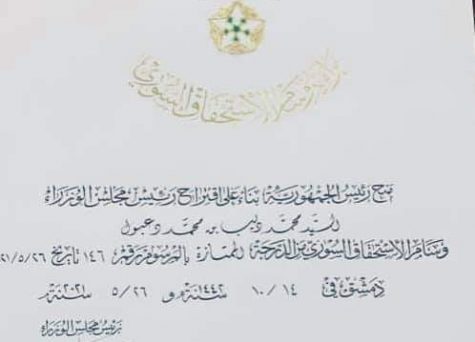 براءة وسام الاستحقاق السوري
منح رئيس الجمهورية بناء على اقتراح رئيس مجلس الوزراء
السيد محمد ديب بن محمد دعبول
وسام الاستحقاق السوري من الدرجة الممتازة بالمرسوم رقم ١٤٦ تاريخ ٢١/٥/٢٦
دمشق في ١٤ / ١٠ / ١٤٤٢ سنة هـ و ٢٦ / ٥ / ٢٠٢١ سنة م
رئيس مجلس الوزراء